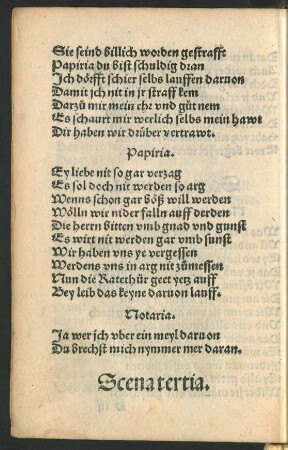 Sie seind billich worden gestrafft
Papiria du bist schuldig dran
Ich dörfft schier selbs lauffen daruon
Damit ich nit in jr straff kem
Darzů mir mein ehr vnd gůt nem
Es schaurt mir werlich selbs mein hawt
Dir haben wir drüber vertrawt.
Papiria.
Ey liebe nit so gar verzag
Es sol doch nit werden so arg
Wenns schon gar böß will werden
Wölln wir nider falln auff derden
Die herrn bitten vmb gnad vnd gunst
Es wirt nit werden gar vmb sunst
Wir haben vns ye vergessen
Werdens vns in arg nit zůmessen
Nun die Ratethür geet yetz auff
Bey leib das keyne daruon lauff.
Notaria.
Ja wer jch vber ein meyl daruon
Du brechst mich nymmer mer daran.
Scena tertia.